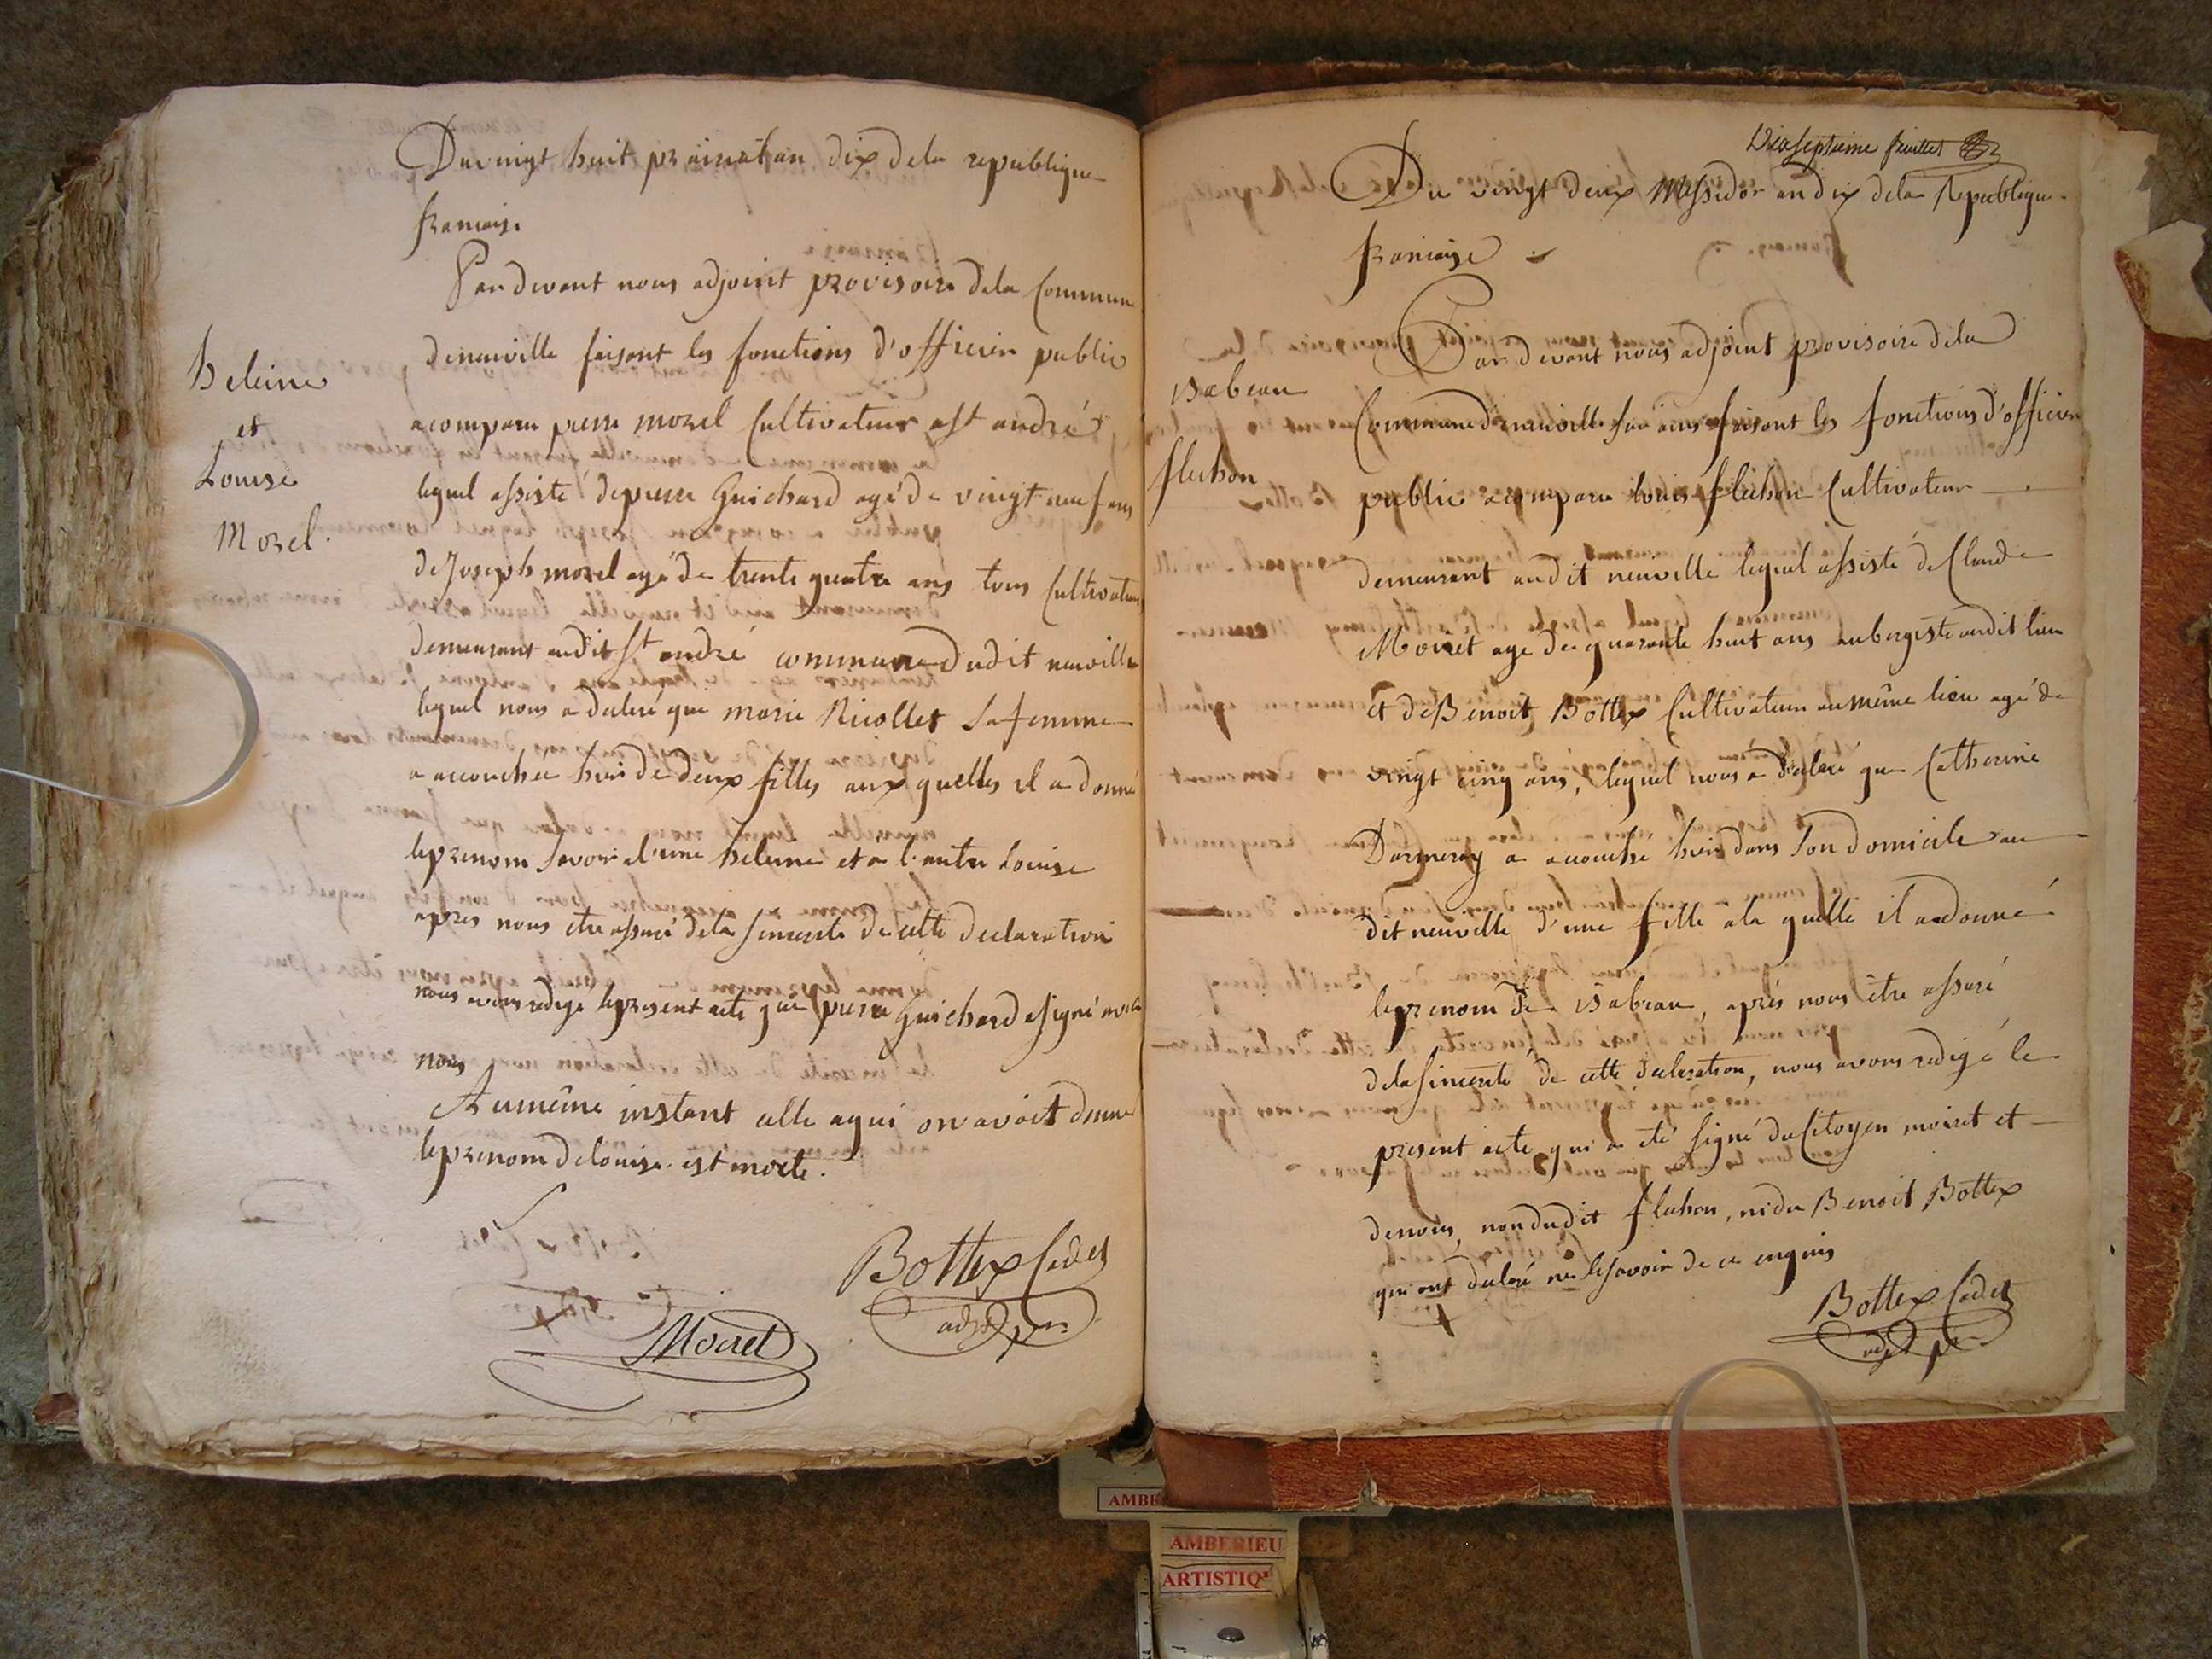 Du vingt huit prairial an dix de la republique
francaise
Par devant nous adjoint provisoire de la Commune
de neuville faisant les fonctions d'officier public
a comparu pierre morel Cultivateur a st andré
lequel assisté de pierre Guichard agé de vingt neuf ans
de Joseph morel agé de trente quatre ans tous Cultivateurs
demeurant audit st andré commune dudit neuville
lequel nous a declaré que marie Nicollet sa femme
a accouchée hier de deux filles aux quelles il a donné
le prenom savoir a l'une heleine et a l'autre Louise
apres nous etre assuré de la sincerité de cette declaration
nous avons redigé le present acte que pierre Guichard a signé avec
nous
Au même instant celle a qui on avoit donné
le prenom de louise est morte.
heleine
et
Louise
Morel.
Moiret
Bottex Cadet
adjt pre
Dixseptieme feuillet
Du vingt deux Messidor an dix de la Republique
francaise
Par devant nous adjoint provisoire de la
Commune de neuville sur ains faisant les fonctions d'officier
public a comparu louis fluchon Cultivateur
demeurant audit neuville lequel assisté de Claude
Moiret agé de quarante huit ans aubergiste audit lieu
et de Benoit Bottex Cultivateur au même lieu agé de
vingt cinq ans, lequel nous a declaré que Catherine
Darmeray a accouché hier dans son domicile au
dit neuville d'une fille a la quelle il a donné
le prenom de isabeau, après nous être assuré
de la sincerité de cette declaration, nous avons redigé le
present acte qui a été signé du Citoyen moiret et
de nous, non dudit fluchon, ni de Benoit Bottex
qui ont declaré ne le savoir de ce enquis
isabeau
fluchon
Bottex Cadet
adjt pre
AMBE
AMBERIEU
ARTISTIQ